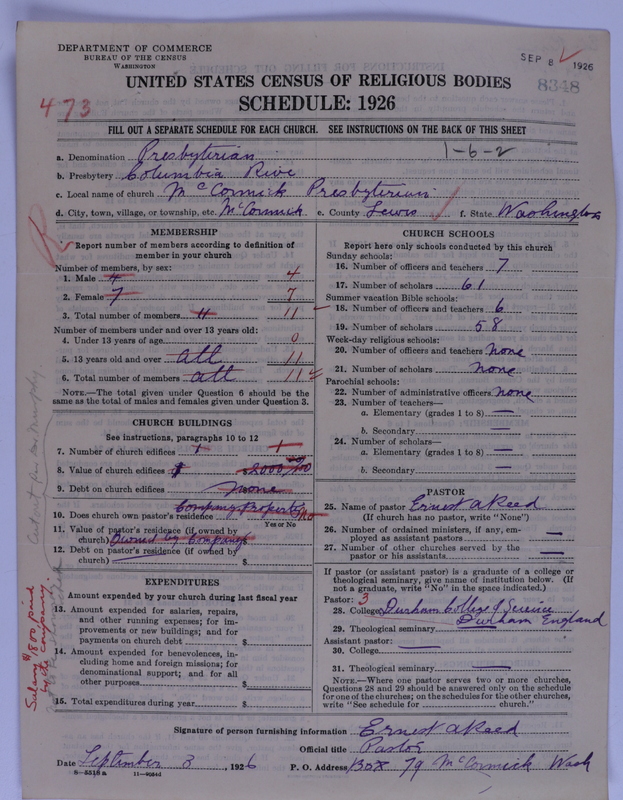 DEPARTMENT OF COMMERCE
BUREAU OF THE CENSUS
WASHINGTON
SEP 8 1926
8348
UNITED STATES CENSUS OF RELIGIOUS BODIES
SCHEDULE: 1926
473
FILL OUT A SEPARATE SCHEDULE FOR EACH CHURCH. SEE INSTRUCTIONS ON THE BACK OF THIS SHEET
1-6-2
a. Denomination Presbyterian
b. Presbytery Columbia Rive
c. Local name of church McCormick Presbyterian
d. City, town, village, or township, etc. McCormick e. County Lewis f. State Washington
MEMBERSHIP
Report number of members according to definition of member in your church
Number of members, by sex:
1. Male 4 4
2. Female 7 7
3. Total number of members 11 11
Number of members under and over 13 years old:
4. Under 13 years of age 0
5. 13 years old and over all 11
6. Total number of members all 11
NOTE.—The total given under Question 6 should be the same as the total of males and females given under Question 3.
CHURCH BUILDINGS
See instructions, paragraphs 10 to 12
7. Number of church edifices 1 1
8. Value of church edifices $ $8000 00/100
9. Debt on church edifices none
Company Property
10. Does church own pastor's residence No
Yes or No
11. Value of pastor's residence (if owned by church) Owned by Company
12. Debt on pastor's residence (if owned by church) $
EXPENDITURES
Amount expended by your church during last fiscal year
13. Amount expended for salaries, repairs, and other running expenses; for improvements or new buildings; and for payments on church debt $
14. Amount expended for benevolences, including home and foreign missions; for denominational support; and for all other purposes $
15. Total expenditures during year $
Salary $1,800, paid
by the company.
CHURCH SCHOOLS
Report here only schools conducted by this church
Sunday schools:
16. Number of officers and teachers 7
17. Number of scholars 61
Summer vacation Bible schools:
18. Number of officers and teachers 6
19. Number of scholars 58
Week-day religious schools:
20. Number of officers and teachers None
21. Number of scholars None
Parochial schools:
22. Number of administrative officers none
23. Number of teachers—
a. Elementary (grades 1 to 8) —
b. Secondary —
24. Number of scholars—
a. Elementary (grades 1 to 8) —
b. Secondary —
PASTOR
25. Name of pastor Ernest A Reed
(If church has no pastor, write "None")
26. Number of ordained ministers, if any, employed as assistant pastors —
27. Number of other churches served by the pastor or his assistants —
If pastor (or assistant pastor) is a graduate of a college or theological seminary, give name of institution below. (If not a graduate, write "No" in the space indicated.)
Pastor: 3
28. College Durham College of Science
Durham England
29. Theological seminary
Assistant pastor:
30. College —
31. Theological seminary —
NOTE.—Where one pastor serves two or more churches, Questions 28 and 29 should be answered only on the schedule for one of the churches; on the schedules for the other churches, write "See schedule for church."
Signature of person furnishing information Ernest A Reed
Official title Pastor
Date September 3, 1926 P. O. Address Box 79 McCormick Wash
8-5518a 11-9054d